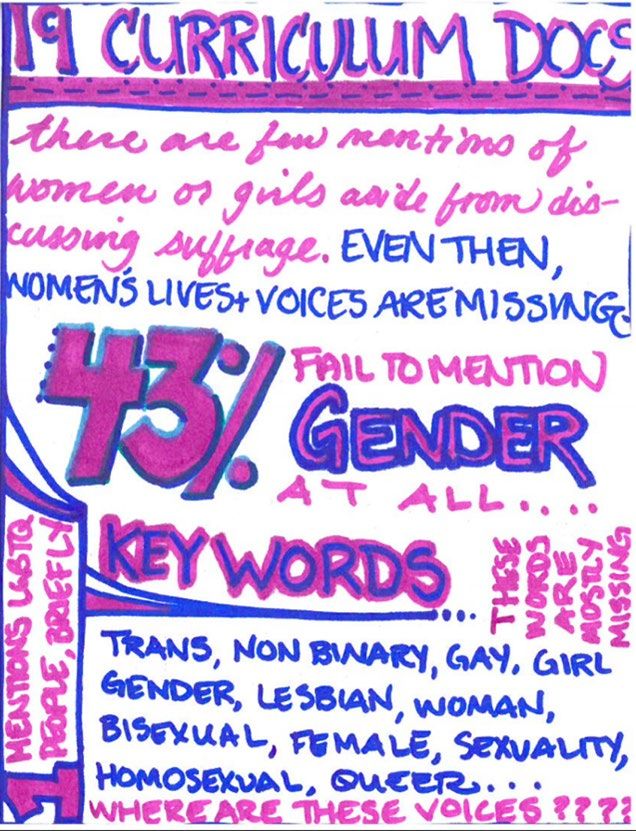 19 CURRICULUM DOCS
there are few mentions of
women or girls aside from dis-
cussing suffrage. EVEN THEN,
WOMEN'S LIVES + VOICES ARE MISSING.
43% FAIL TO MENTION
GENDER
AT ALL....
KEY WORDS...
THESE
WORDS
ARE
MOSTLY
MISSING
TRANS, NON BINARY, GAY, GIRL
GENDER, LESBIAN, WOMAN,
BISEXUAL, FEMALE, SEXUALITY,
HOMOSEXUAL, QUEER...
1 MENTIONS LGBTQ
PEOPLE, BRIEFLY
WHERE ARE THESE VOICES ????